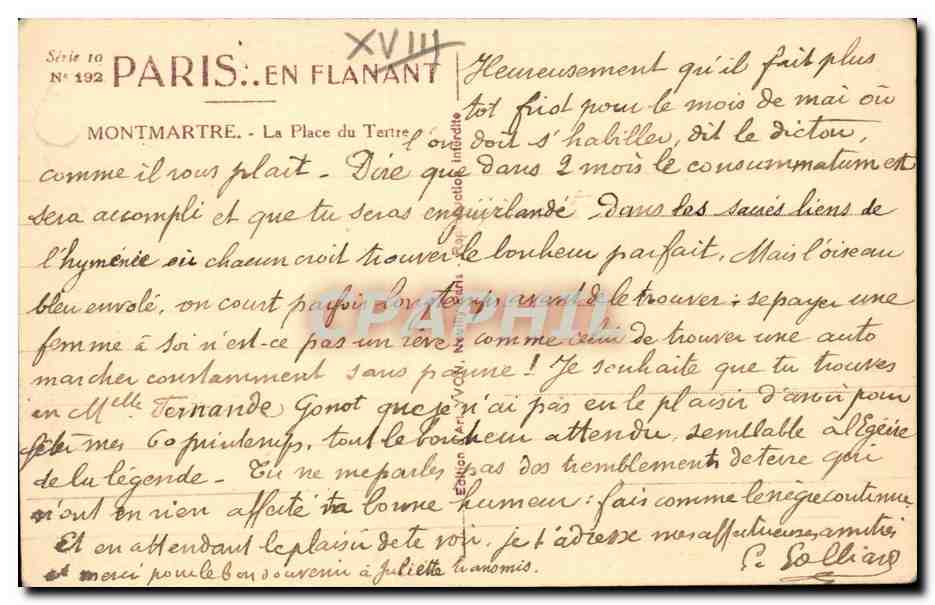 XVIII
Série 10
Nº 192
PARIS... EN FLANANT
MONTMARTRE. - La Place du Tertre
Heureusement qu'il fait plus
tot friod pour le mois de mai où
l'on doit s'habiller, dit le dicton,
comme il vous plait - Dire que dans 2 mois le consummatum est
sera accompli et que tu seras enguirlandé dans les sacrés liens de
l'hyménée où chacun croit trouver le bonheur parfait. Mais l'oiseau
bleu envolé, on court parfois longtemps avant de le trouver : se payer une
femme à soi n'est-ce pas un rêve comme celui de trouver une auto
marcher constamment sans panne ! Je souhaite que tu trouves
en Melle Fernande Gonot que je n'ai pas eu le plaisir d'avoir pour
fêter mes 60 printemps, tout le bonheur attendu, semblable à l'Egérie
de la légende - Tu ne me parles pas des tremblements de terre qui
n'ont en rien affecté ta bonne humeur : fais comme le nègre continue
Et en attendant le plaisir de te voir, je t'adresse mes affectueuses amitiés
et merci pour le bon souvenir à Juliette transmis.
Edition d'Art YVON, Neuilly-Paris - Reproduction interdite
CPAPHIL